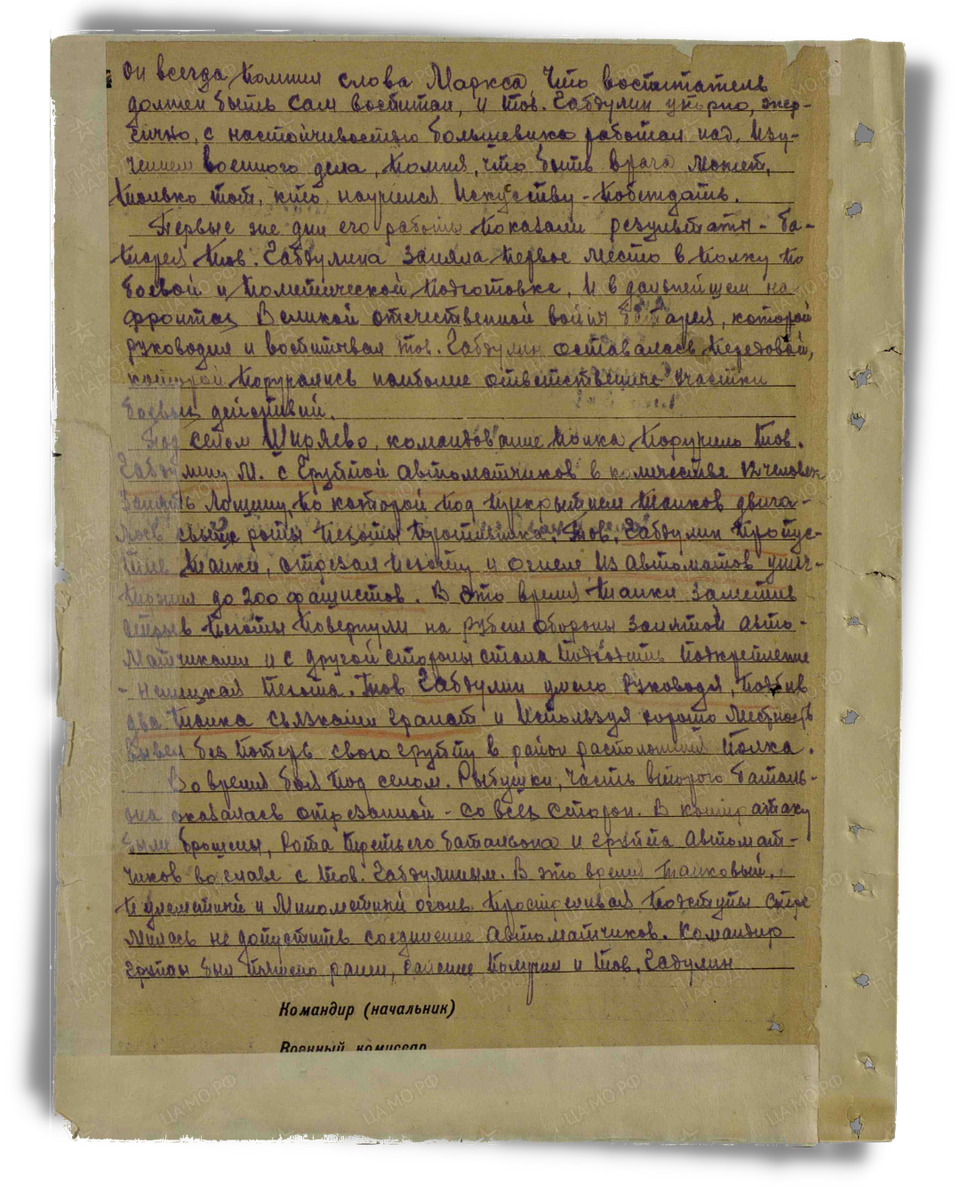 Он всегда помнил слова Маркса что воспитатель
должен быть сам воспитан, и тов. Габдулин упорно, энер-
гично, с настойчивостью большевика работал над изу-
чением военного дела, помня, что быть врага может,
только тот, кто научился искусству - побеждать.
Первые же дни его работы показали результаты - ба-
тарея тов. Габдулина заняла первое место в полку по
боевой и политической подготовке. И в дальнейшем на
фронтах Великой отечественной войны батарея, которой
руководил и воспитывал тов. Габдулин оставалась передовой,
которой поручались наиболее ответственные участки
боевых действий.
Под селом Ширяево, командование полка поручило тов.
Габдулину М. с группой автоматчиков в количестве 12 человек
занять лощину, по которой под прикрытием танков двига-
лось свыше роты пехоты противника. Тов. Габдулин пропус-
тив танки, отрезал пехоту и огнем из автоматов унич-
тожил до 200 фашистов. В это время танки заметив
отрыв пехоты повернули на рубеж обороны занятой авто-
матчиками и с другой стороны стала подходить подкрепление
- немецкая пехота. Тов Габдулин умело руководя, подбив
два танка связками гранат и используя хорошо местность
вывел без потерь свою группу в район расположения полка.
Во время боя под селом. Рыбушки, часть второго баталь-
она оказалась отрезанной - со всех сторон. В контратаку
были брошены, рота третьего батальона и группа автомат-
чиков во главе с тов. Габдулиным. В это время танковый,
пулеметный и минометный огонь простреливая подступы стре
милась не допустить соединение автоматчиков. Командир
группы был тяжело ранен, ранение получил и тов. Гадулин
Командир (начальник)
Военный комиссар
ЦАМО.РФ